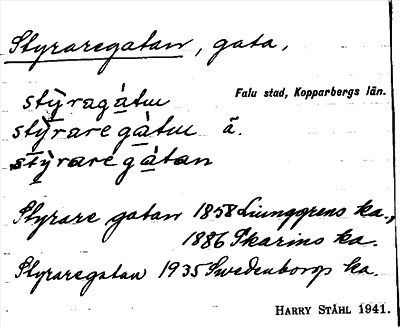 Styraregatan, gata,
sty̆ragátu
Falu stad, Kopparbergs län.
sty̆rare gàtu ä.
sty̆rare gàtan
Styrare gatan 1858 Ljunggrens ka.,
1886 Skarins ka.
Styraregatan 1935 Swedenborgs ka.
HARRY STÅHL 1941.